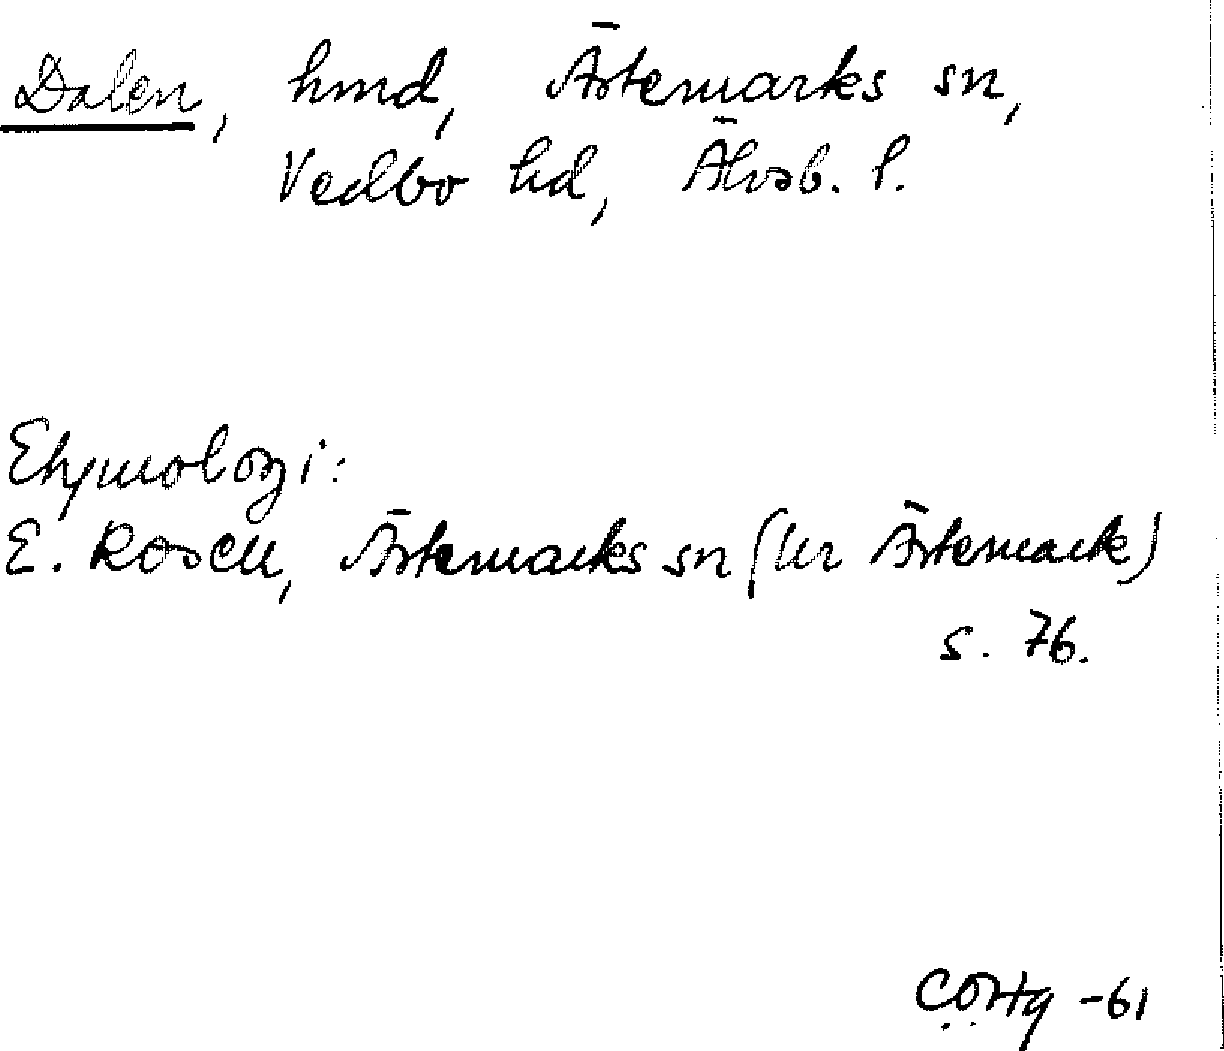 Dalen, hmd, Ärtemarks sn,
Vedbo hd, Älvsb. l.
Etymologi:
E. Rosell, Ärtemarks sn (ur Ärtemark)
s. 76.
-61